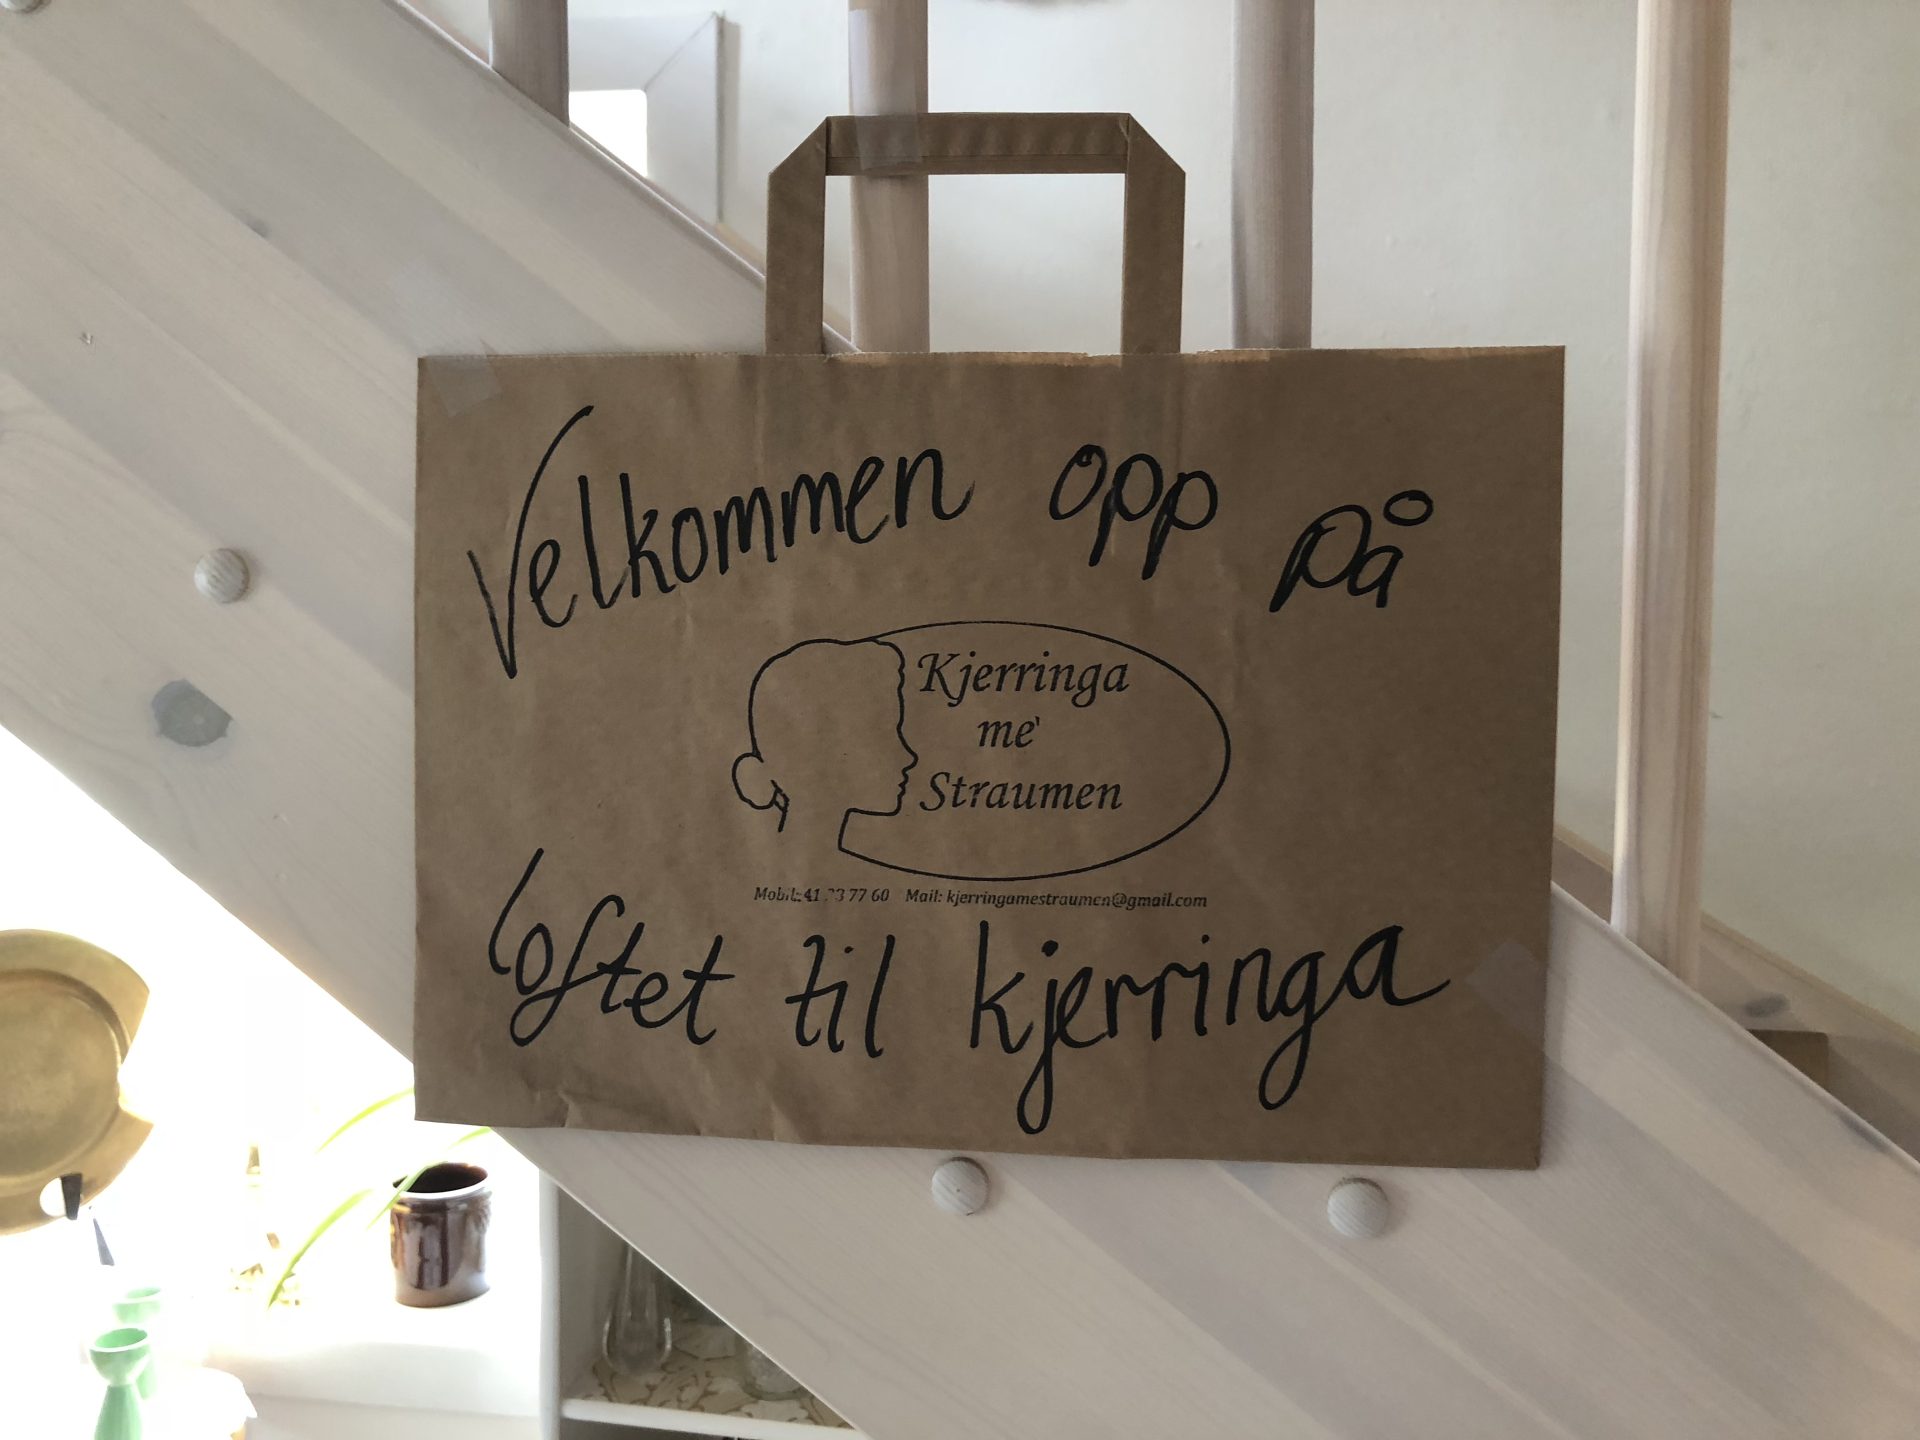 Velkommen opp på
Kjerringa
me'
Straumen
Mail: kjerringamestraumen@gmail.com
loftet til kjerringa